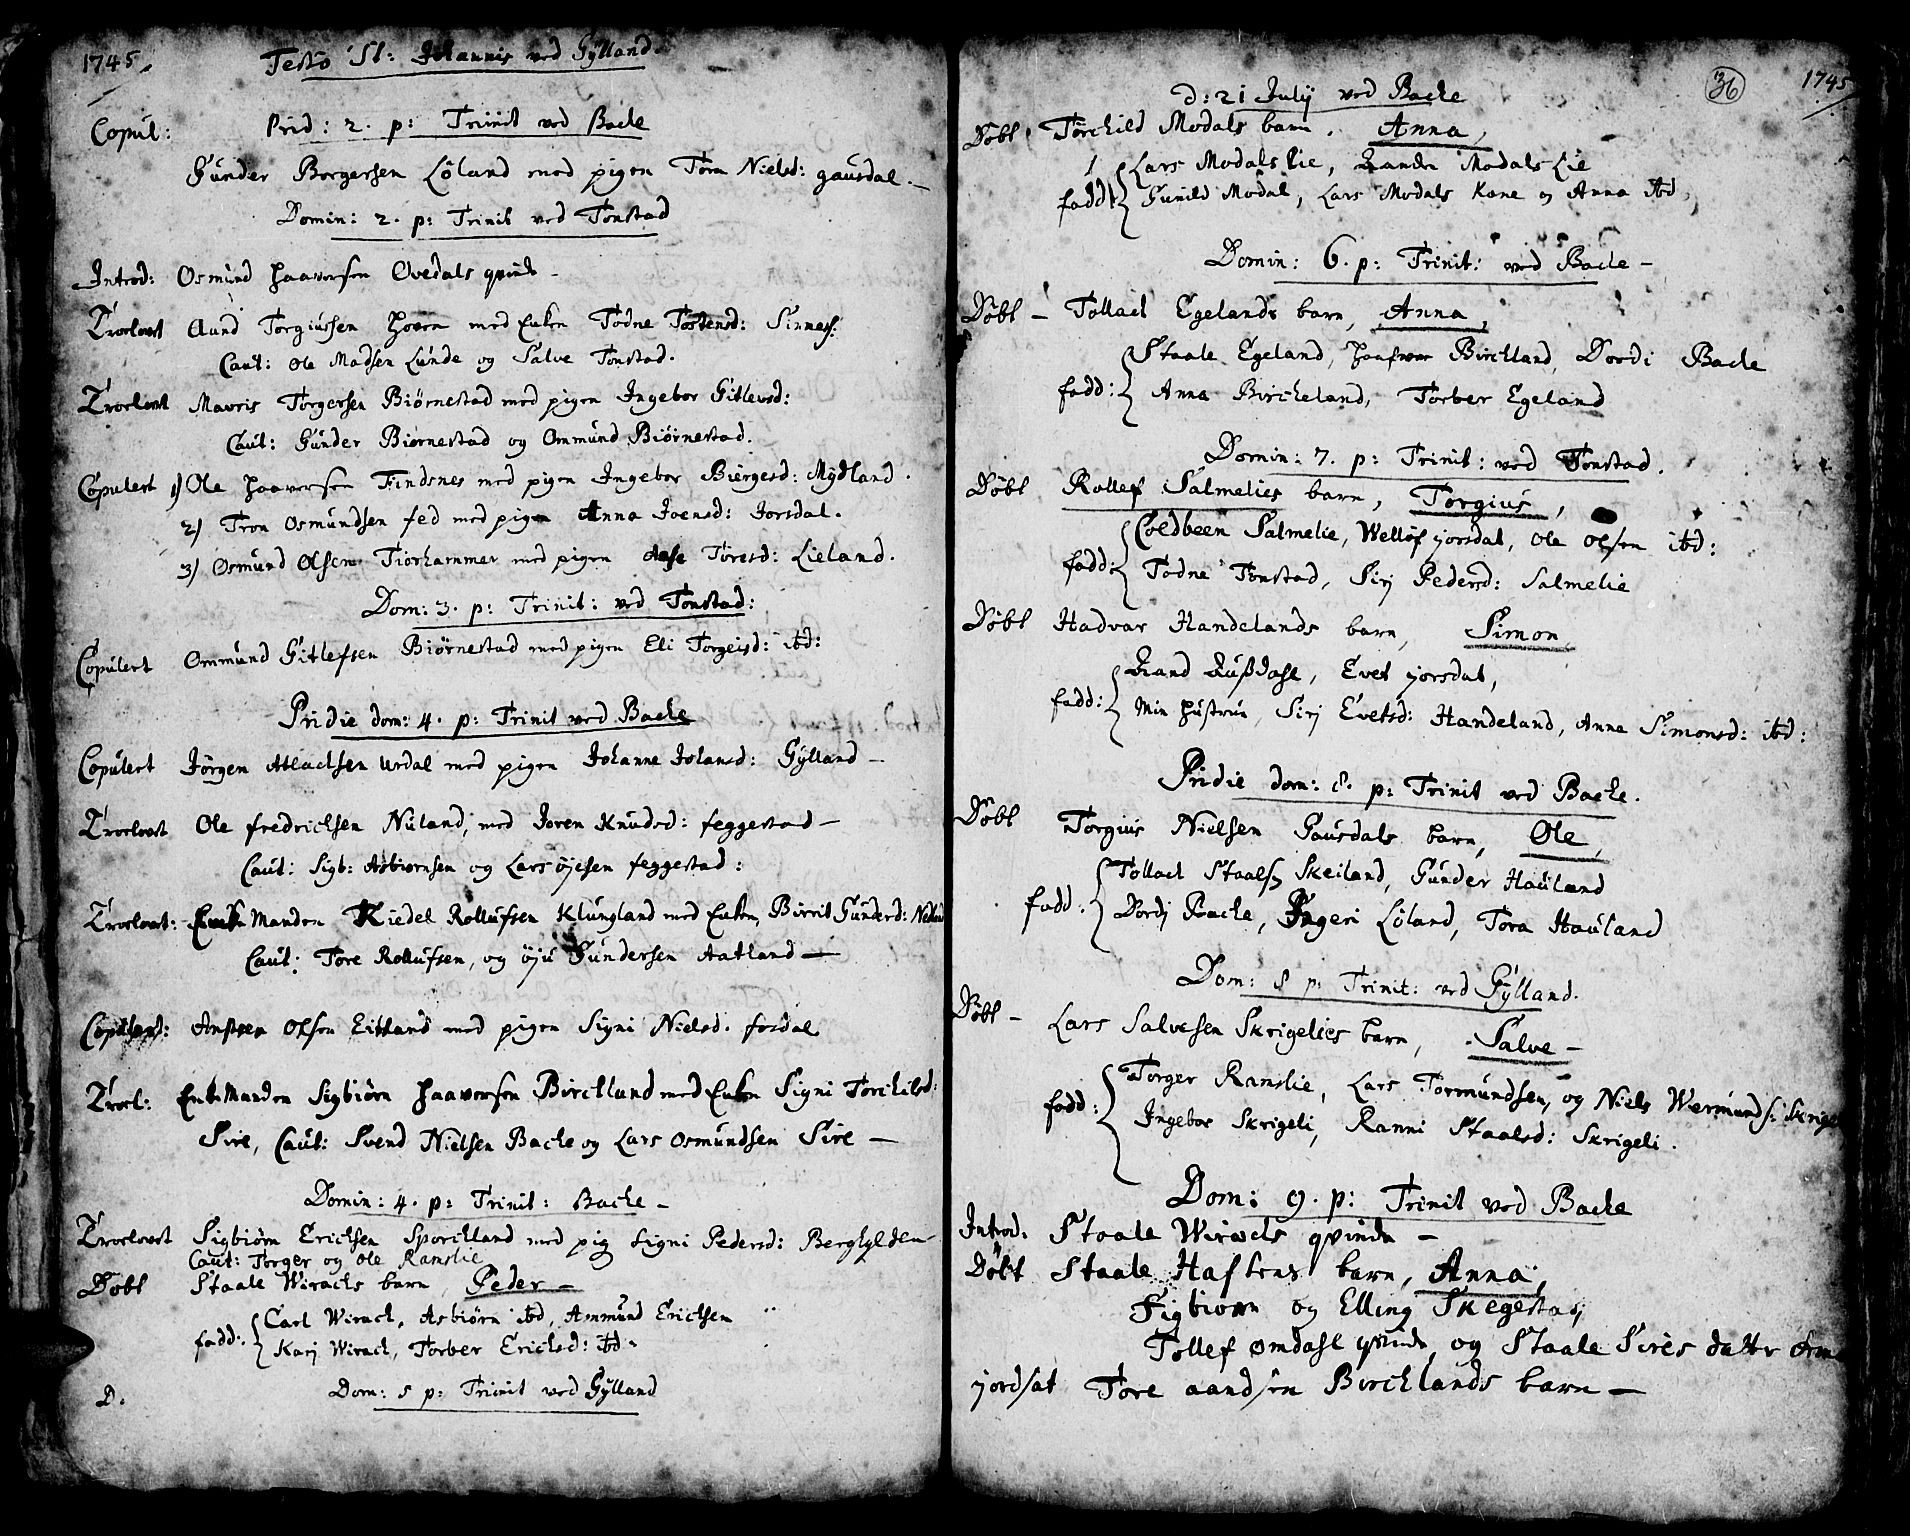 1745.
Festo St: Johannis ved Gylland.
Copul: Prid: 2. p: Trinit ved Bache
Gunder Borgersen Löland med pigen Tora Nielsd: gausdal.
Domin: 2. p: Trinit ved Tonstad
Introd: Osmund Haaversen Ovedals qvinde
Troelovet Aund Torgiussen Hoven med Enken Todne Tostensd: Sinnes:
Caut: Ole Madsen Lunde og Salve Tonstad.
Troelovet Mavris Torgersen Biörnestad med pigen Ingebor Gitlevsd:
Caut: Gunder Biörnestad og Ommund Biörnestad.
Copulert 1) Ole Haaversen Findsnes med pigen Ingebor Biergesd: Mydland.
2) Tron Osmundsen fed med pigen Anna Joensd: Josdal.
3) Osmund Olsen Tiorhammer med pigen Aase Toresd: Lieland.
Dom: 3. p: Trinit: ved Tonstad:
Copulert Ommund Gitlefsen Biörnestad med pigen Eli Torgeisd: ibd:
Pridie dom: 4. p: Trinit ved Bache
Copulert Jörgen Atlachsen Urdal med pigen Johanne Johansd: Gylland
Troelovet Ole fredrichsen Nuland, med Joren Knudsd: feggestad
Caut: Sigb: Asbiørnsen og Lars öjesen feggestad:
Troelovet: Enke Manden Kiedel Rollufsen Klungland med Enken, Birrit Gundersd: Nedland
Caut: Tore Rollufsen, og öju Gundersen Aatland
Copulered: Anstien Olsen Eitland med pigen Signi Nielsd. fosdal
Troel: Enke Manden Sigbiörn Haaversen Birchland med Enken Signi Torchilsd:
Sire, Caut: Svend Nielsen Bache og Lars Osmundsen Sire
Domin: 4. p: Trinit: Bache
Troelovet Sigbiörn Erichsen Sporchland med pig Signi Pedersd: Berghylden
Caut: Torger og Ole Ramslie
Döbt Staale Wirachs barn, Peder
fadd: Carl Wirach, Asbiörn ibd, Ammund Erichsen
Karj Wirach, Torber Erichsd: ibd.
D. Dom: 5 p: Trinit ved Gylland
36 1745
d: 21 July ved Bache
Döbt Torchild Modals barn. Anna,
fadd: Lars Modals Lie, Rande Modals Lie
Gunild Modal, Lars Modals Kone og Anna ibd,
Domin: 6. p: Trinit: ved Bache
Döbt Tollach Egelands barn, Anna,
fadd: Staale Egeland, Haafvar Birchland, Dordi Bache
Anna Bircheland, Torber Egeland
Domin: 7. p: Trinit: ved Tonstad.
Döbt Rollef Salmelies barn, Torgius,
fadd: Coldbeen Salmelie, Wellöf jorsdal, Ole Olsen ibd:
Todne Tonstad, Sirj Pedersd: Salmelie
Döbt Hadvar Handelands barn, Simon,
fadd: Rand Rußdahl, Evet jorsdal,
Min Hustrue, Sirj Evetsd: Handeland, Anna Simonsd: ibd:
Pridie dom: 8. p: Trinit ved Bache.
Döbt Torgius Nielsen Gausdals barn, Ole,
fadd: Tollach Staals Skeiland, Gunder Hauland
Dordj Bache, Ingeri Löland, Tora Hauland
Dom: 8 p: Trinit: ved Gylland.
Döbt Lars Salvesen Skrigelies barn, Salve
fadd: Torger Ramslie, Lars Tormundsen, og Niels Wermunds: Skrigeli
Ingebor Skrigeli, Ranni Staalsd: Skrigeli.
Dom: 9. p: Trinit ved Bache
Introd. Staale Wirachs qvinde
Döbt Staale Haftens barn, Anna,
Sigbiorn og Elling Skegestad,
Tollef Omdahl qvinde, og Staale Sires datter
jordsat Tore aandsen Birchlands barn